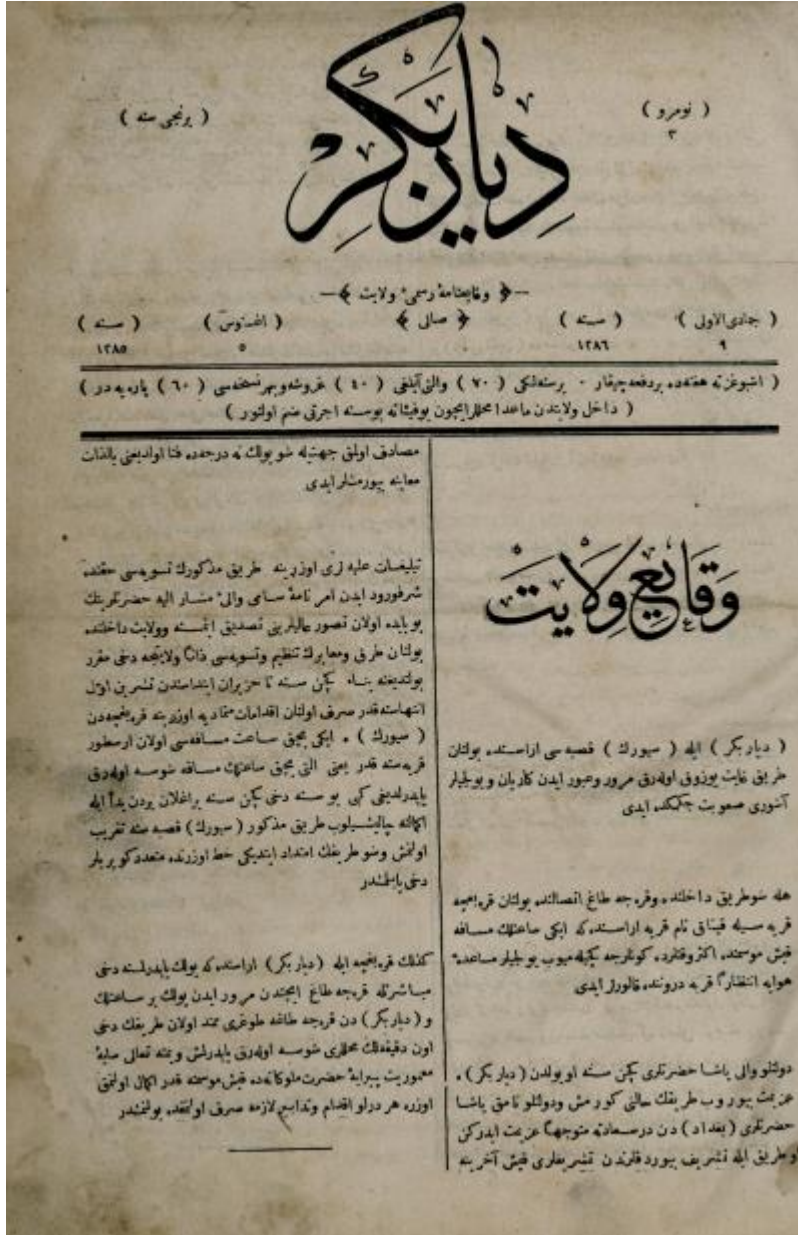 ( نومرو )
٢
دیاربکر
( برنجی سنه )
وقایعنامۀ رسمیء ولایت
( جمادی الاولی ) ( سنه ) ( صالی ) ( اغستوس ) ( سنه )
٩ ١٢٨٦ ٥ ١٢٨٥
( اشبو غزته هفته‌ده بر دفعه چیقار ٠ برسنه‌لكی ( ٧٠ ) والتی آیلغی ( ٤٠ ) غروشه و بهر نسخه‌سی ( ٦٠ ) پاره‌یه در )
( داخل ولایتدن ماعدا محللر ایچون بو فیئاته پوسته اجرتی ضم اولنور )
وقایع ولایت
( دیاربکر ) ایله ( سیورك ) قصبه سی اراسنده بولنان
طریق غایت بوزوق اوله‌رق مرور وعبور ایدن کاربان و یولجیلر
آشوری صعوبت چكمكده ایدی
هله شو طریق داخلنده وقره‌جه طاغ اتصالنده بولنان قره‌باغچه
قریه سیله قیناق نام قریه اراسنده‌كه ایكی ساعتلك مسافه
قیش موسمنده اكثر وقتلرده كونلرجه كچیله‌میوب یولجیلر مساعدۀ
هوایه انتظاراً قریه دروننده قالورلر ایدی
دولتلو والی پاشا حضرتلری كچن سنه او یولدن ( دیاربکر ) ه
عزیمت بیوروب طریقك حالنی كورمش ودولتلو نامق پاشا
حضرتلری ( بغداد ) دن درسعادته متوجهاً عزیمت ایدركن
او طریق ایله تشریف بیوردقلرندن تشریفلری قیش آخرینه
مصادف اولمق جهتیله شو یولك نه درجه‌ده فنا اولدیغنی بالذات
معاینه بیورمشلر ایدی
تبلیغات علیه لری اوزرینه طریق مذكورك تسویه‌سی حقنده
شرفورود ایدن امر نامۀ سامی والیء مشار الیه حضرتلرینك
بو بابده اولان تصور عالیلرینی تصدیق ایتمسنه وولایت داخلنده
بولنان طرق ومعابرك تنظیم وتسویه‌سی ذاتاً ولایتجه دخی مقرر
بولندیغنه بناءً كچن سنه تا حزیران ابتداسندن تشرین اول
انتهاسنه قدر صرف اولنان اقدامات متمادیه اوزرینه قره‌باغچه‌دن
( سیورك ) ه ایكی بچق ساعت مسافه‌سی اولان ارسطور
قریه‌سنه قدر یعنی التی بچق ساعتلك مسافه شوسه اوله‌رق
یاپدرلدیغی كبی بو سنه دخی كچن سنه براغلان یردن بدأ ایله
اكمالنه چالیشیلوب طریق مذكور ( سیورك ) قصبه سنه تقریب
اولنمش وشو طریقك امتداد ایتدیكی خط اوزرنده متعدد كوپریلر
دخی یاپلمشدر
كذلك قره‌باغچه ایله ( دیاربکر ) اراسنده‌كه یولك یاپدرلسنه دخی
مباشرتله قره‌جه طاغ ایچندن مرور ایدن یولك بر ساعتلك
و ( دیاربکر ) دن قره‌جه طاغه طوغری ممتد اولان طریقك دخی
اون دقیقه‌لك محللری شوسه اوله‌رق یاپدرلمش وبمنه تعالی سایۀ
معموریت پیرایۀ حضرت ملوكانه‌ده قیش موسمنه قدر اكمال اولنمق
اوزره هر درلو اقدام وتدابیر لازمه صرف اولنمقده بولنمشدر